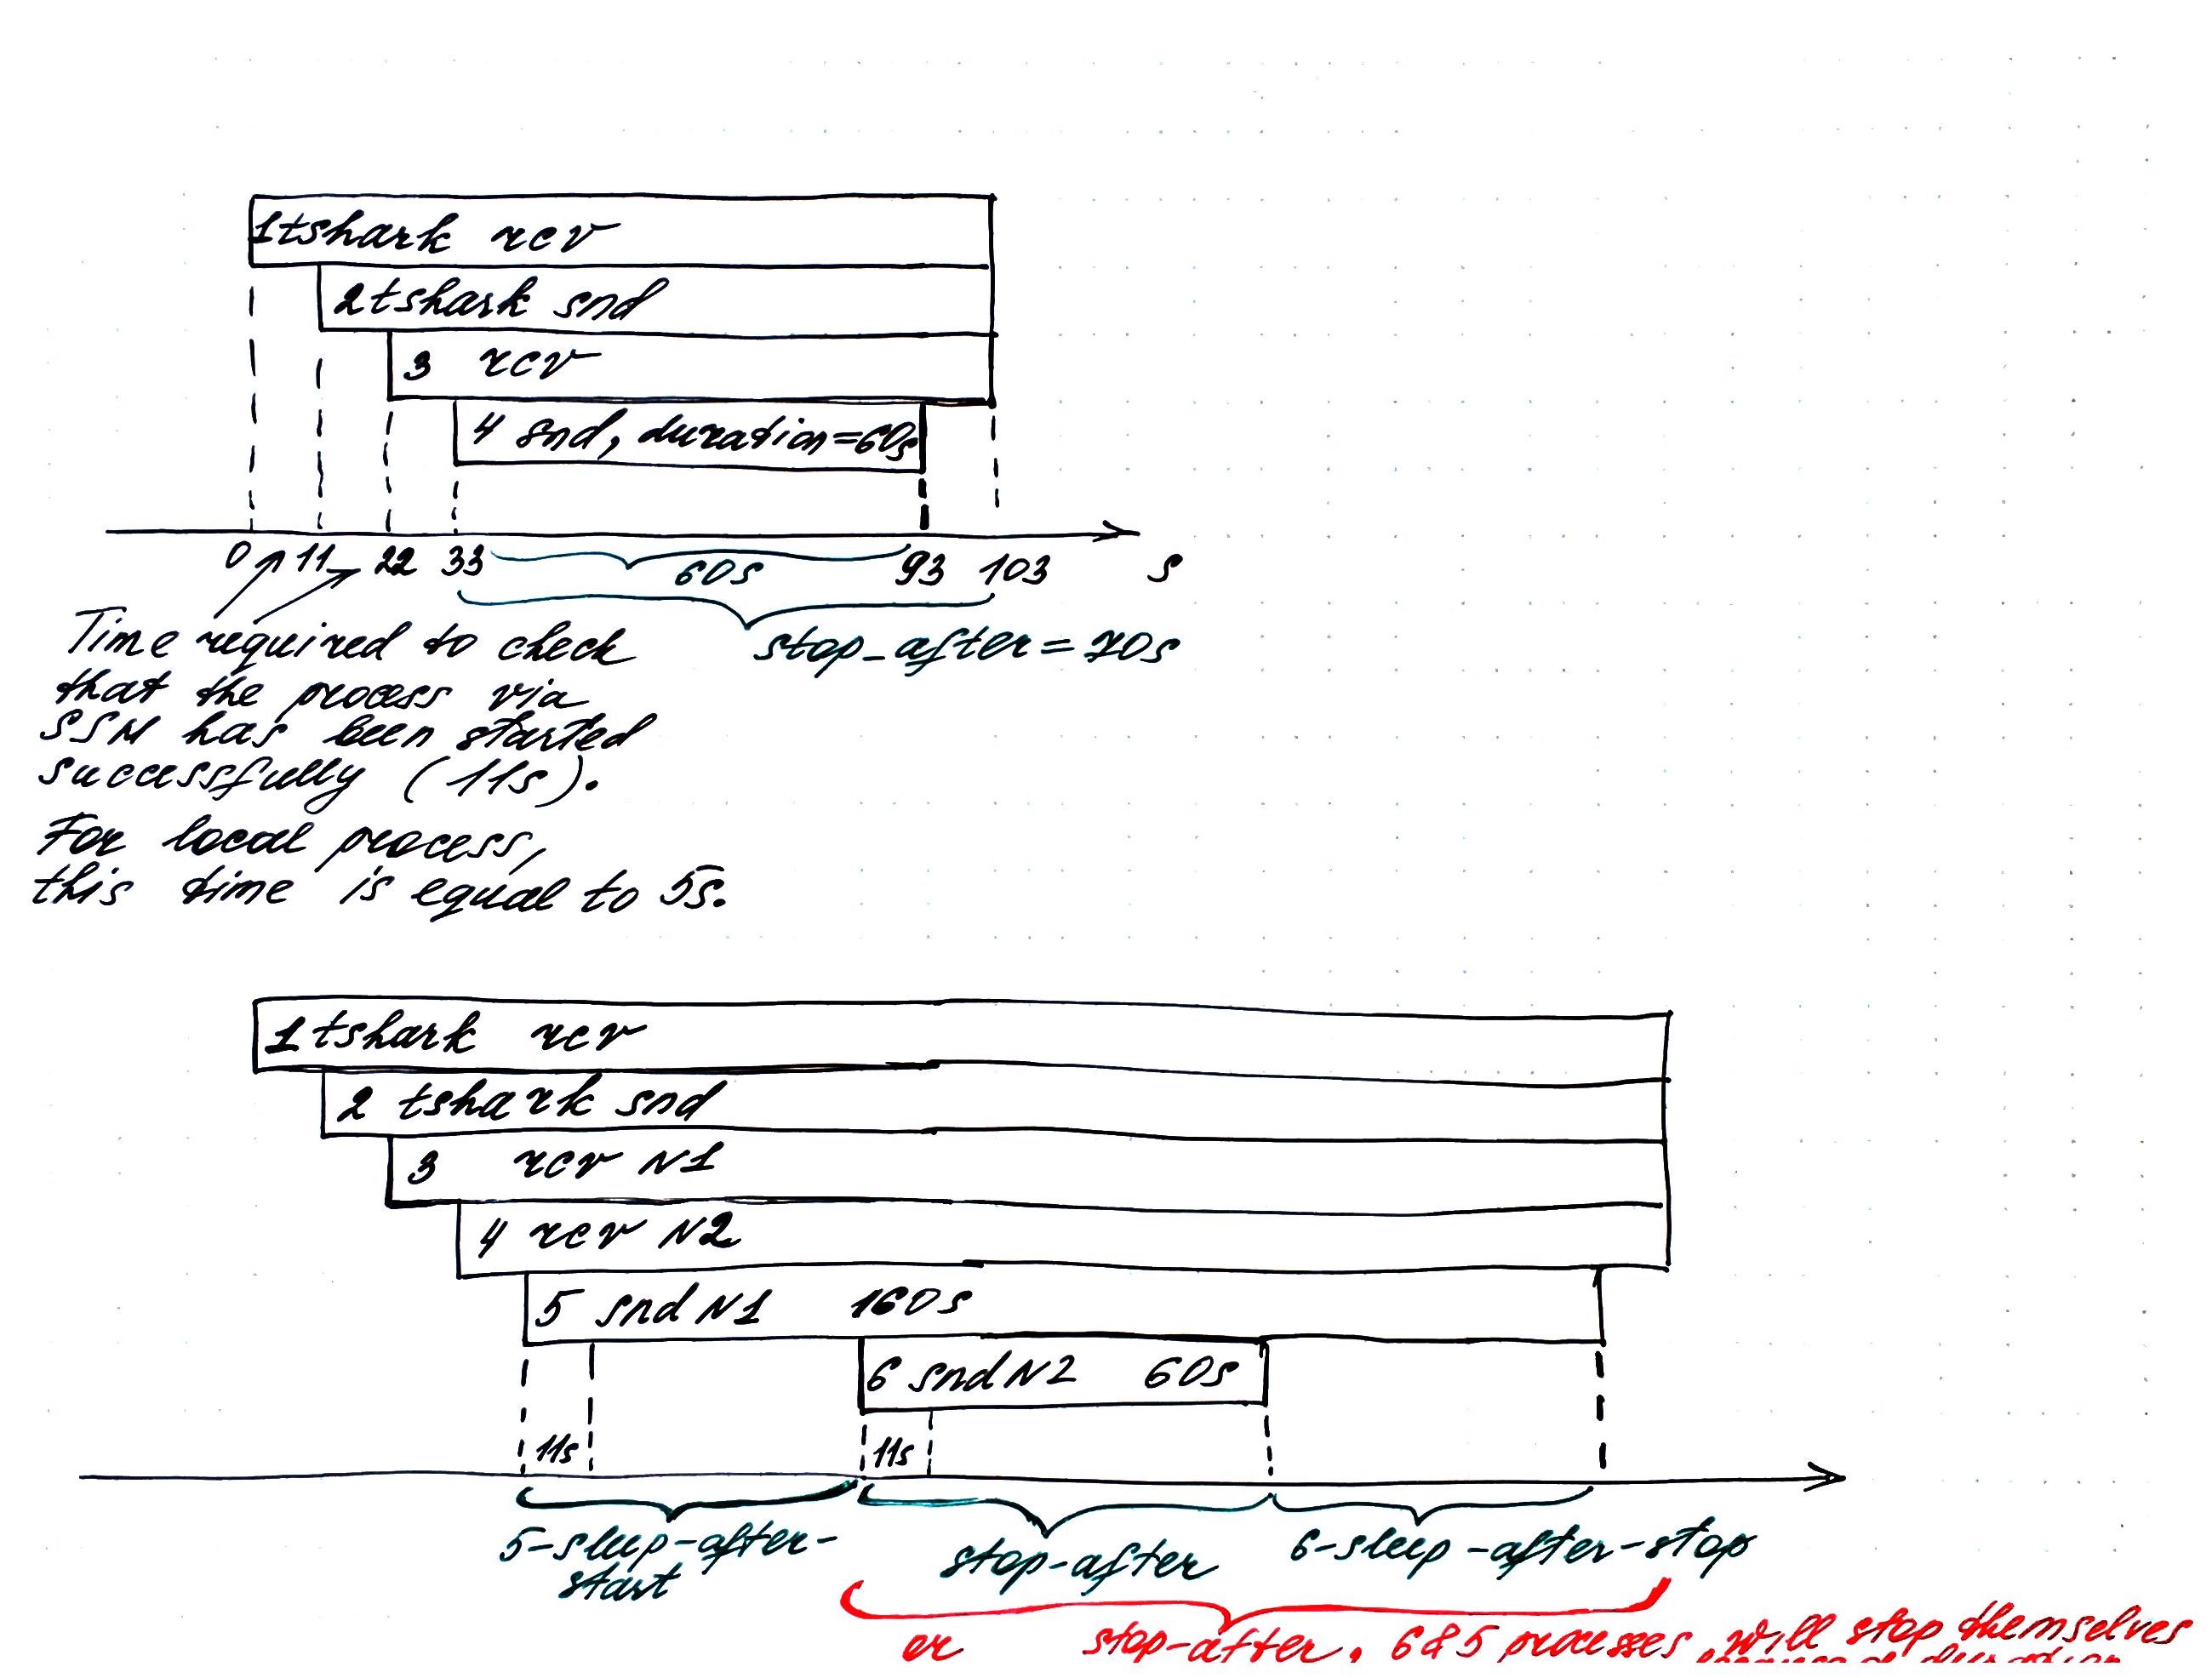 1 tshark rcv
2 tshark snd
3 rcv
4 snd, duration=60s
0 11 22 33 60s 93 103 s
stop_after = 70s
Time required to check
that the process via
SSH has been started
successfully (11s).
For local process,
this time is equal to 5s.
1 tshark rcv
2 tshark snd
3 rcv N1
4 rcv N2
5 snd N1 160s
6 snd N2 60s
11s 11s
5-sleep-after-
start
stop-after
6-sleep-after-stop
or stop-after, 6&5 processes will stop themselves